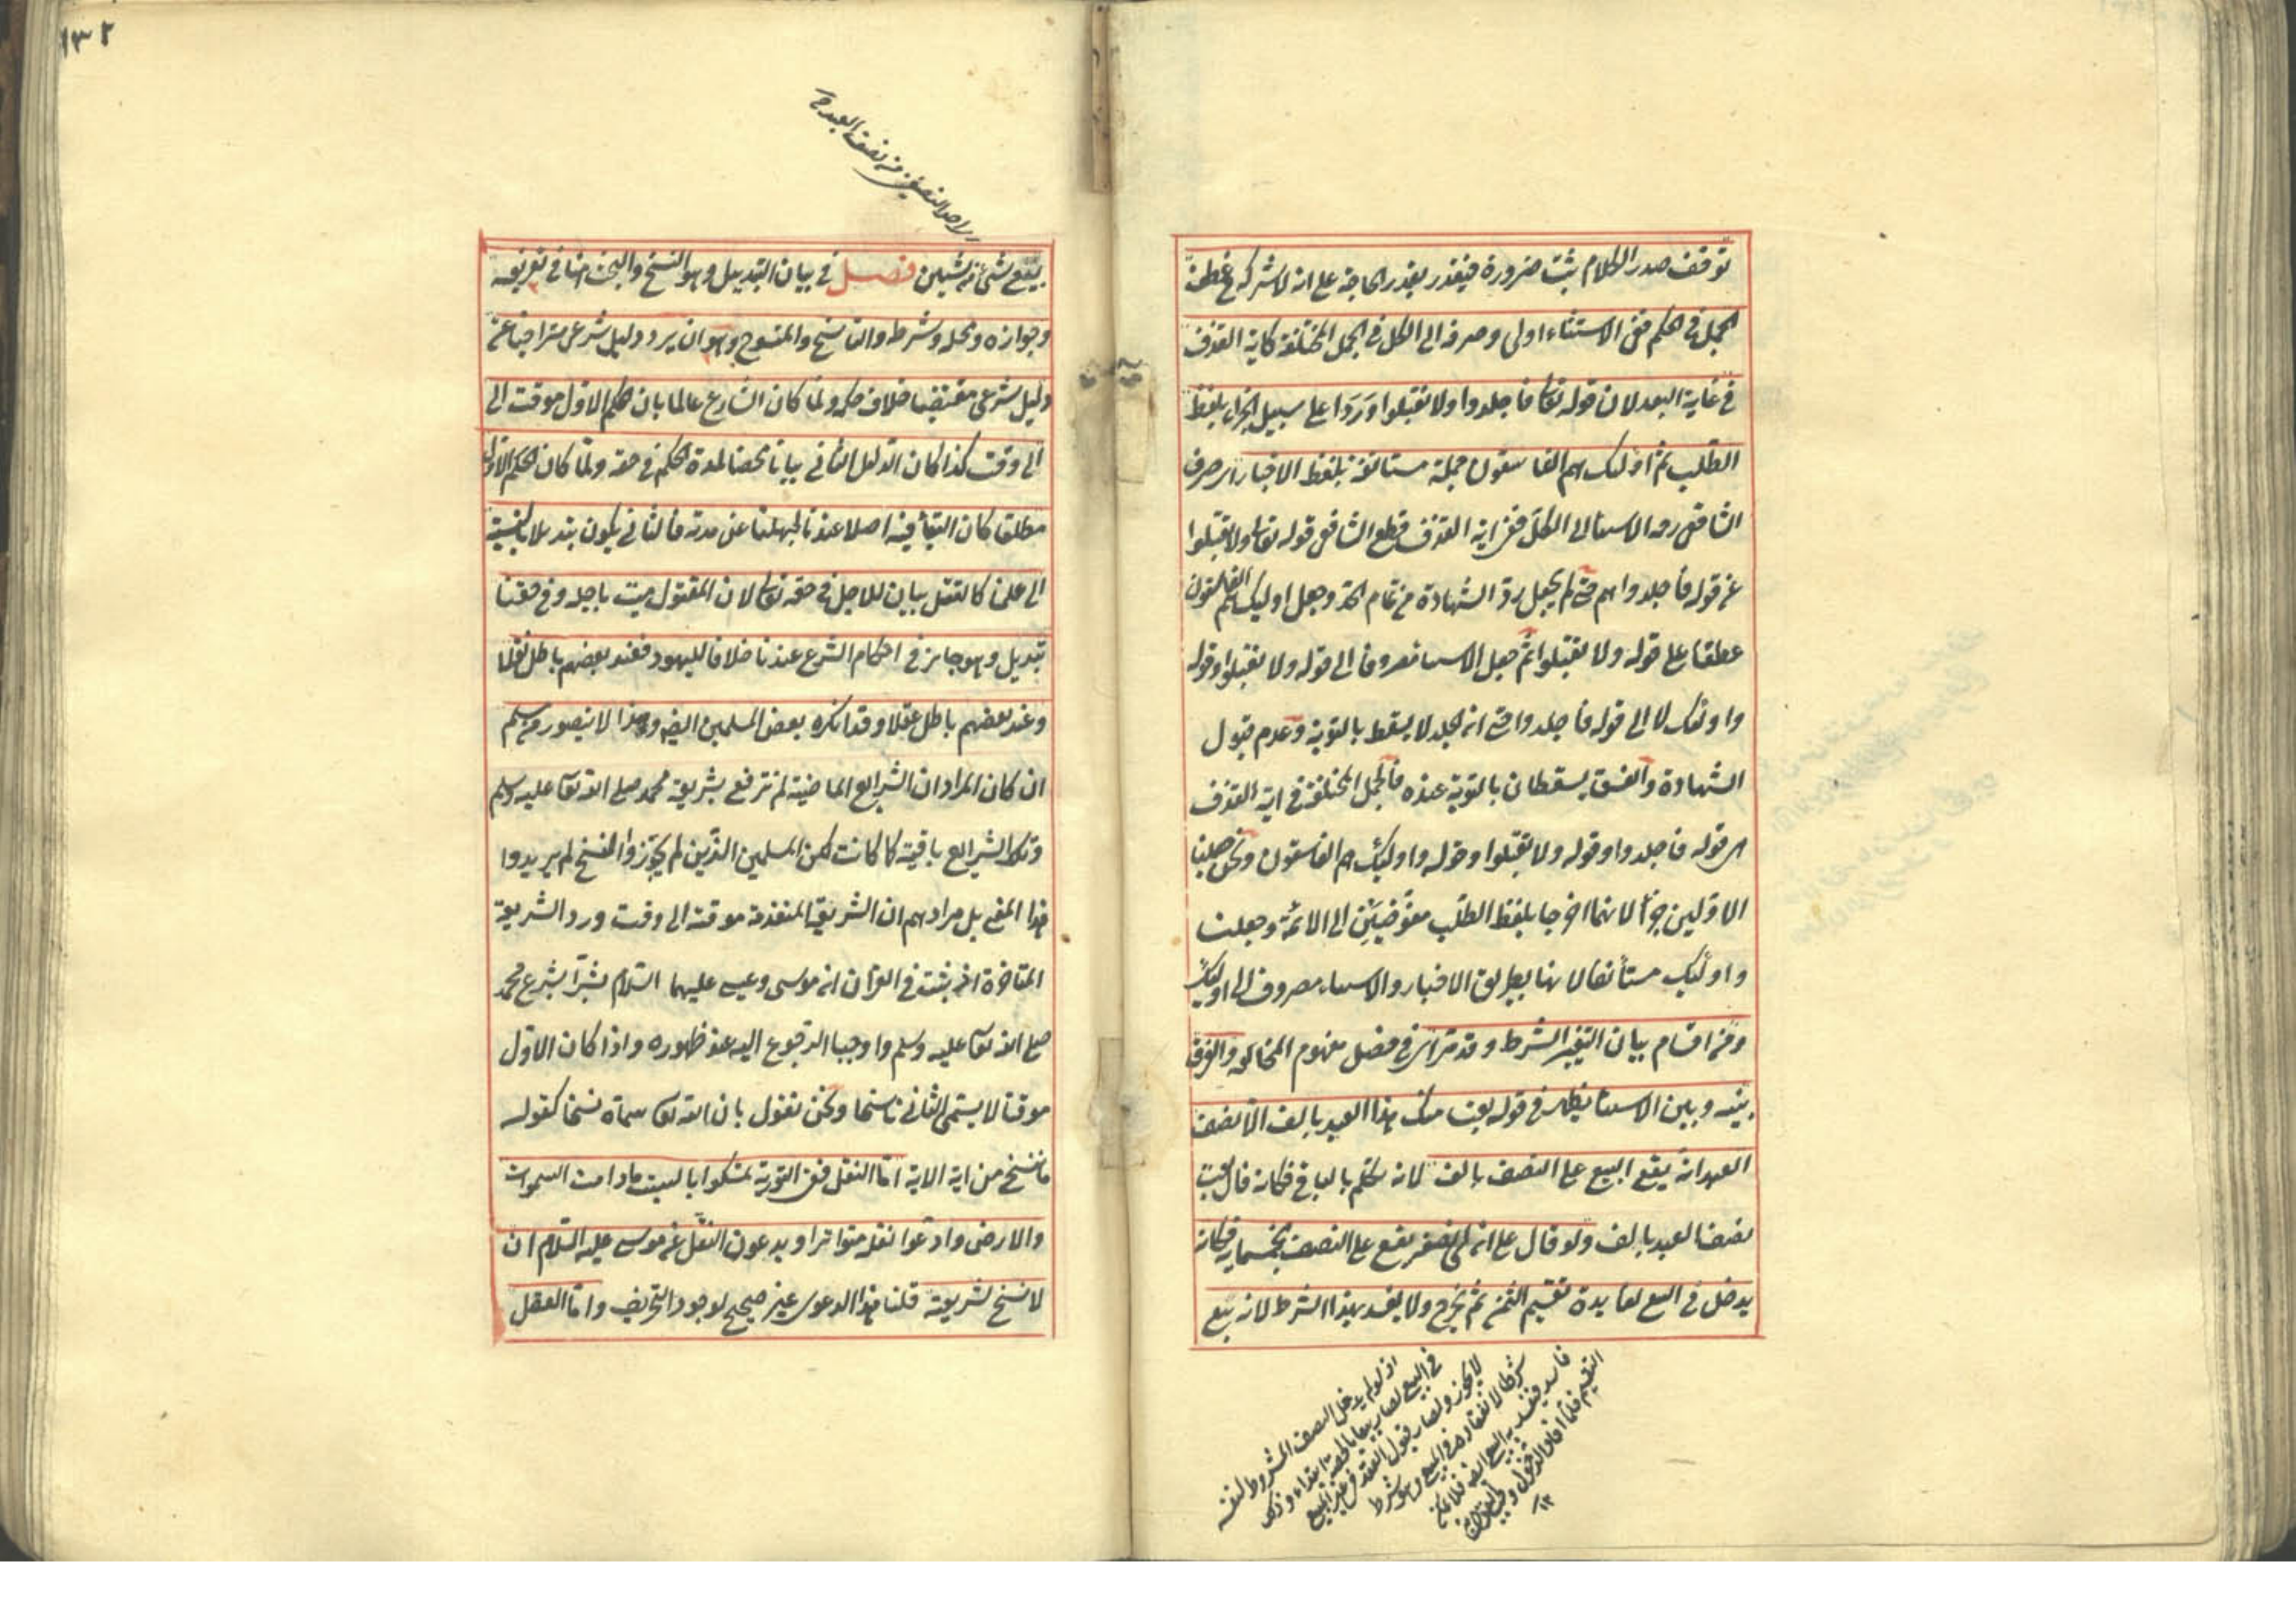 توقف صدر الكلام يثبت ضرورة فيتقدر بقدر الحاجة على انه لا شركة في عطف
الجمل في الحكم ففي الاستثناء اولى وصرفه الى الكل في الجمل المختلفة كآية القذف
في غاية البعد لان قوله تعالى فاجلدوا ولا تقبلوا وردا على سبيل الجزاء بلفظ
الطلب ثم اولئك هم الفاسقون جملة مستأنفة بلفظ الاخبار اى صرف
الشافعى رحمه الاستثناء الى الكل ففي اية القذف قطع الشافعى قوله تعالى ولا تقبلوا
عن قوله فاجلدواهم حتى لم يجعل رد الشهادة من تمام الحد وجعل اولئك هم الفاسقون
عطفا على قوله ولا تقبلوا ثم جعل الاستثناء مصروفا الى قوله ولا تقبلوا وقوله
واولئك لا الى قوله فاجلدوا حتى ان الجلد لا يسقط بالتوبة وعدم قبول
الشهادة والفسق يسقطان بالتوبة عنده فالجمل المختلفة في اية القذف
اى قوله فاجلدوا وقوله ولا تقبلوا وقوله واولئك هم الفاسقون ونحن جعلنا
الاولين جزأ لانهما اخرجا بلفظ الطلب مفوضين الى الائمة وجعلنا
واولئك مستأنفا لانها بطريق الاخبار والاستثناء مصروف الى اولئك
ومن اقسام بيان التغيير الشرط وقد مر اى في فصل مفهوم المخالفة والفرق
بينه وبين الاستثناء يظهر في قوله بعت منك هذا العبد بالف الا نصف
العبد انه يقع البيع على النصف بالف لانه تكلم بالباقي فكانه قال بعت
نصف العبد بالف ولو قال على ان لى نصفه يقع على النصف بخمسماية فكانه
يدخل في البيع لفايدة تقسيم الثمن ثم يخرج ولا يفسد بهذا الشرط لانه بيع
اذ لو لم يدخل النصف المشروط لنفسه
في البيع لصار بيعا بالحصة ابتداء وذلك
لا يجوز ولصار قبول العقد في غير المبيع
شرطا لانعقاده في المبيع وهو شرط
فاسد فيفسد به البيع
التقسيم فلما افاد الدخول
١٢
١٣٢
لاحد النصفين من نصف العبد
بيع شئ من شيئين فصل في بيان التبديل وهو النسخ والبحث هنا في تعريفه
وجوازه ومحله وشرطه والناسخ والمنسوخ وهو ان يرد دليل شرعى متراخيا عن
دليل شرعى مقتضيا خلاف حكمه ولما كان الشارع عالما بان حكم الاول موقت الى
الى وقت كذا كان الدليل الثانى بيانا محضا لمدة الحكم في حقه ولما كان الحكم الاول
مطلقا كان البقأ فيه اصلا عندنا لجهلنا عن مدته فالثانى يكون تبديلا بالنسبة
الى علمنا كالقتل بيان للاجل في حقه تعالى لان المقتول ميت باجله وفي حقنا
تبديل وهو جايز في احكام الشرع عندنا خلافا لليهود فعند بعضهم باطل نقلا
وعند بعضهم باطل عقلا وقد انكره بعض المسلمين ايضا وهذا لا يتصور من مسلم
ان كان المراد ان الشرايع الماضية لم ترتفع بشريعة محمد صلى الله تعالى عليه وسلم
وتلك الشرايع باقية كما كانت لكن المسلمين الذين لم يجوزوا النسخ لم يريدوا
هذا المعنى بل مرادهم ان الشريعة المتقدمة موقتة الى وقت ورد الشريعة
المتاخرة اذ ثبت في القرآن ان موسى وعيسى عليهما السلام بشرا بشرع محمد
صلى الله تعالى عليه وسلم واوجبا الرجوع اليه عند ظهوره واذا كان الاول
موقتا لا يسمى الثانى ناسخا ونحن نقول بان الله تعالى سماه نسخا كقوله
ما ننسخ من اية الاية اما النقل ففي التورية تمسكوا بالسبت مادامت السموات
والارض وادعوا نقله متواترا ويدعون النقل عن موسى عليه السلام ان
لا نسخ لشريعته قلنا هذا الدعوى غير صحيح لوجود التحريف واما العقل